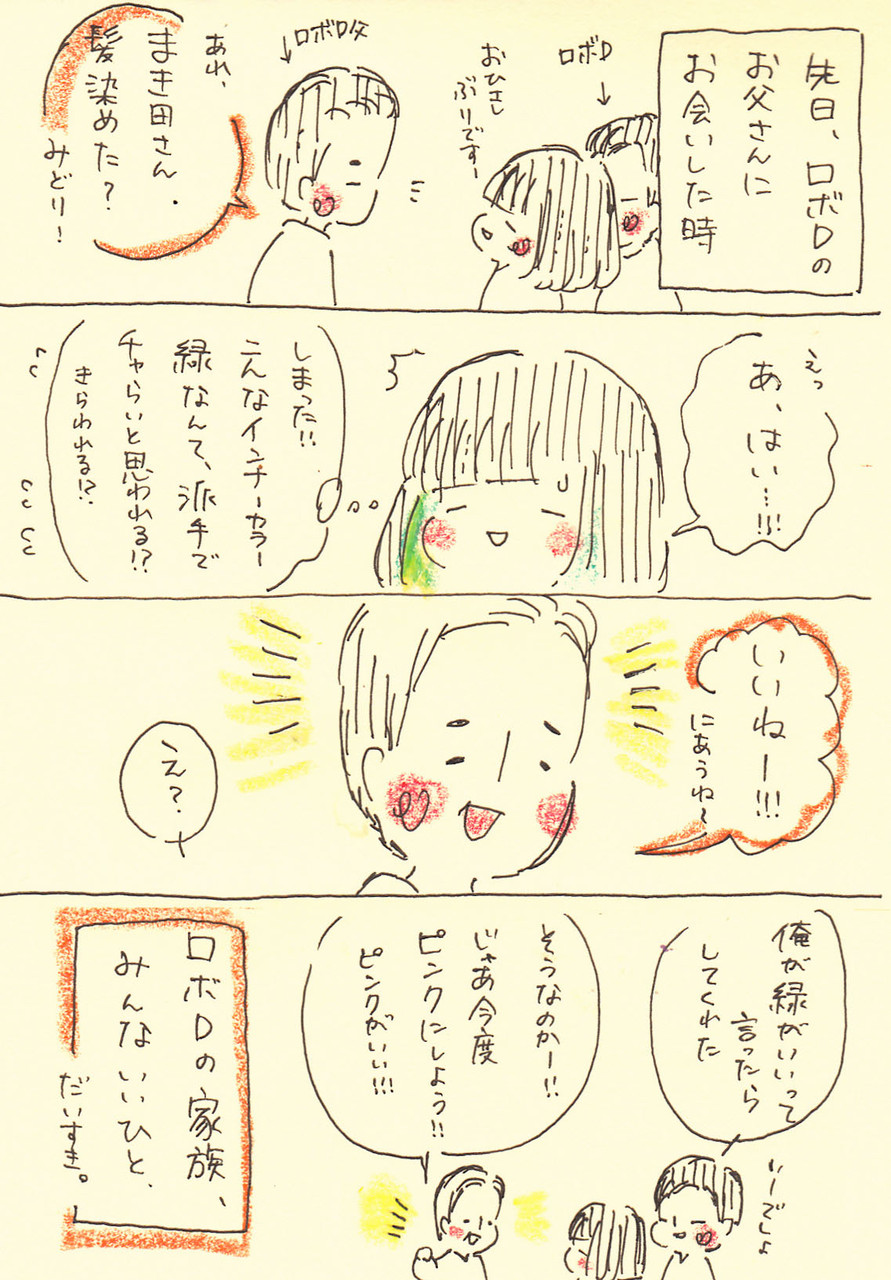 先日、ロボDの
お父さんに
お会いした時
ロボD
おひさし
ぶりですー
ロボD父
あれ、
まき田さん、
髪染めた?
みどり!
えっ
あ、はい…!!
しまった!!
こんなインナーカラー
緑なんて、派手で
チャらいと思われる!?
きらわれる!?
いいねー!!!
にあうね〜
え?
俺が緑がいいって
言ったら
してくれた
いーでしょ
そうなのかー!!
じゃあ今度
ピンクにしよう!!
ピンクがいい!!!
ロボDの家族、
みんないいひと、
だいすき。